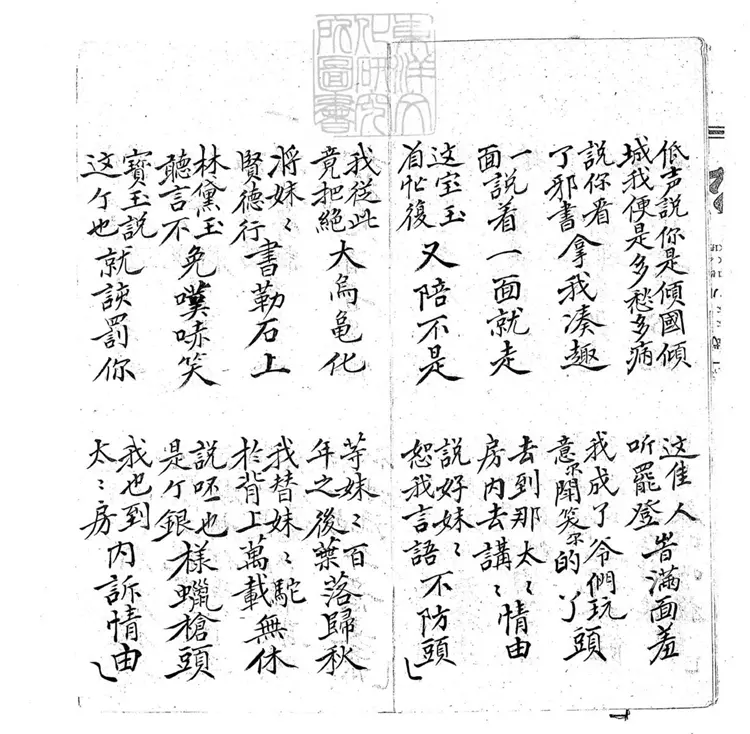 東洋文
化研究
所圖書
低声說你是傾國傾
城我便是多愁多病
这佳人
听罷登旹滿面羞
說你看
了邪書拿我凑趣
我成了爷們玩
意尔聞笑尔的丫頭
一
面說着一面就走
去到那太〻
房內去講〻情由
这宝玉
首忙復又陪不是
說好妹〻
恕我言語不防頭
我從此
竟把絕大烏龜化
等妹〻百
年之後葉落歸秋
將妹〻
賢德行書勒石上
我替妹〻駝
於背上萬載無休
林黛玉
聽言不免嘆哧笑
說呸也
是个銀樣蠟槍頭
寶玉說
这个也就該罰你
我也到
太〻房內訴情由